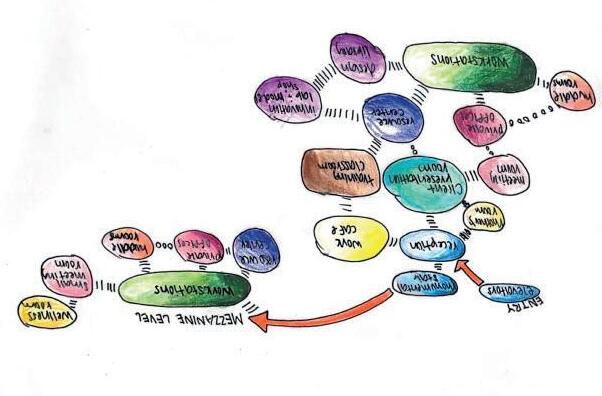 ENTRY
elevators
monumental
stair
reception
mother's
room
cafe
client
presentation
room
meeting
room
training
classroom
resource
center
private
offices
huddle
rooms
innovation
lab + model
shop
design
library
workstations
MEZZANINE LEVEL
workstations
wellness
room
small
meeting
room
huddle
rooms
private
offices
resource
center